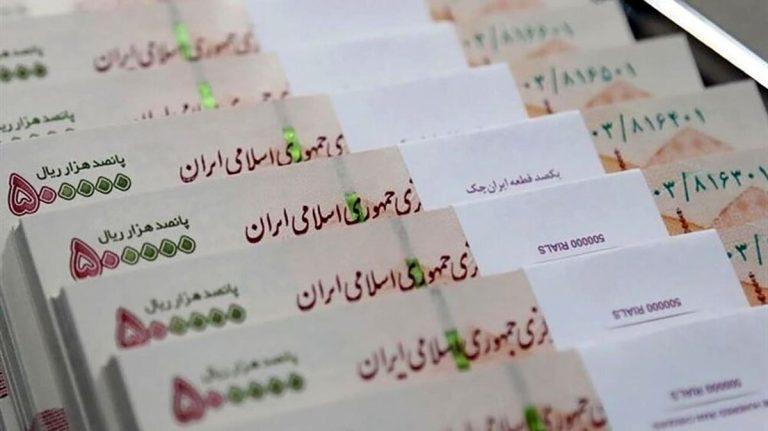 جمهوری اسلامی ایران
۰۳/۸۱۶۶۰۱
۰۳/۸۱۶۵۰۱
پانصد هزار ریال
جمهوری اسلامی ایران
۰۳/۸۱۶۴۰۱
پانصد هزار ریال
۵۰۰۰۰۰
جمهوری اسلامی ایران
یکصد قطعه ایران چک
۰۳/۸۱۶۳۰۱
پانصد هزار ریال
۵۰۰۰۰۰
جمهوری اسلامی ایران
500000 RIALS
پانصد هزار ریال
۵۰۰۰۰۰
جمهوری اسلامی ایران
500000 RIALS
پانصد هزار ریال
۵۰۰۰۰۰
جمهوری اسلامی ایران
500000 RIALS